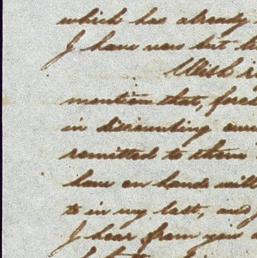 which has already
I have now but
With
mention that,
in discounting our
remitted to them
have on hands will
to in my last, and
I hear from you